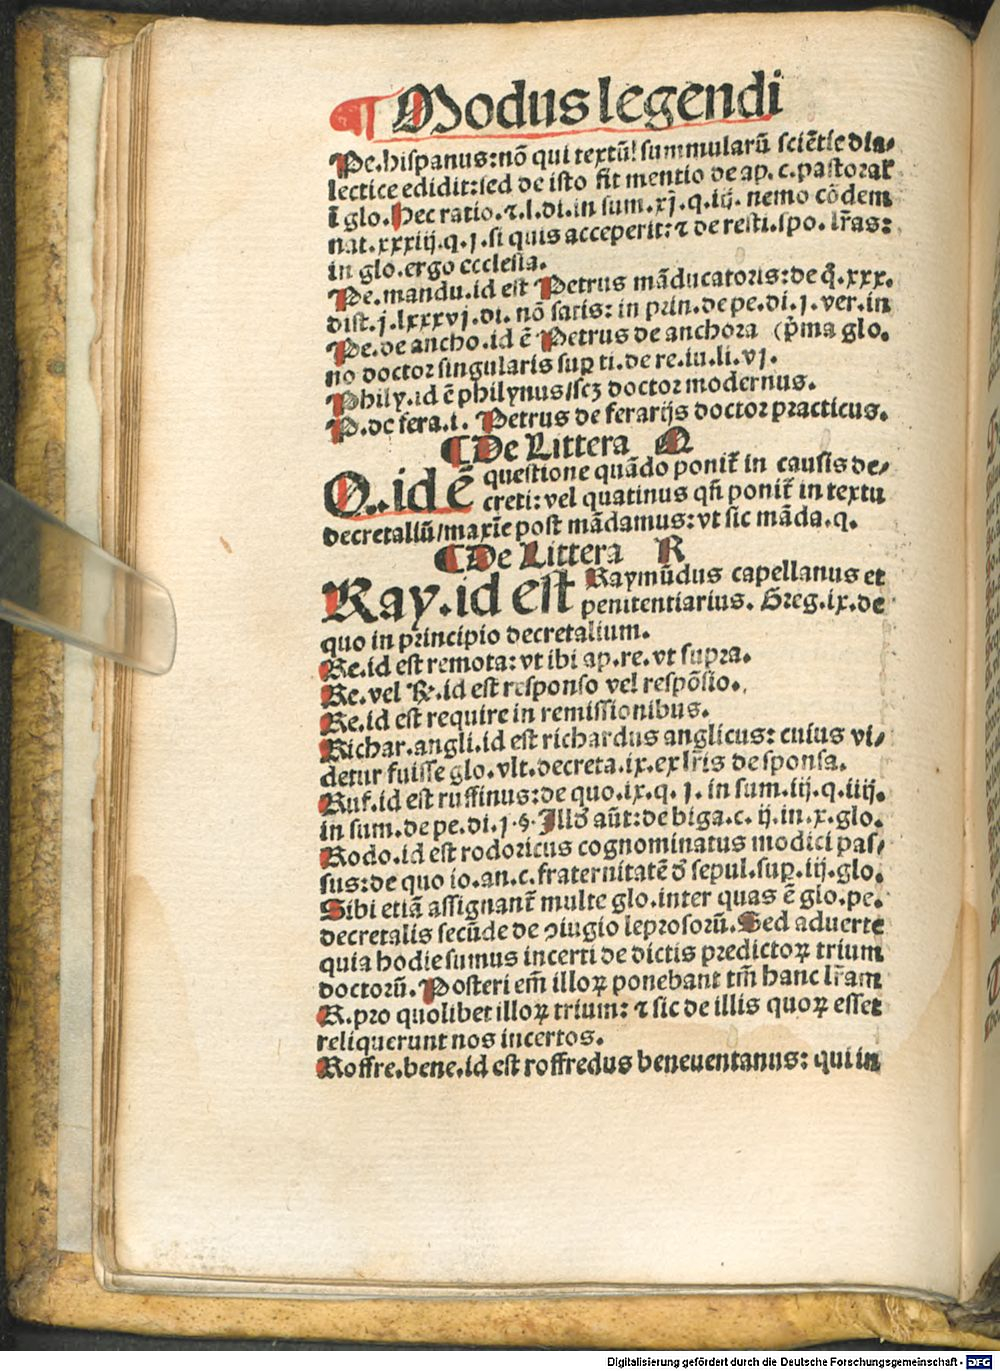 ¶ Modus legendi
Pe.hispanus:nō qui textū summularū sciētie dia⸗
lectice edidit:sed de isto fit mentio de ap.c.pastoral̄
ī glo.Hec ratio.⁊.l.di.in sum.xj.q.iij.nemo cōdem
nat.xxxiij.q.j.si quis acceperit:⁊ de resti.spo.lr̄as:
in glo.ergo ecclesia.
Pe.mandu.id est Petrus māducatoris:de q̄.xxx.
dist.j.lxxxvj.di.nō satis:in prin.de pe.di.j.ver.in
Pe.de ancho.id ē Petrus de anchora (p̄ma glo.
no doctor singularis sup ti.de re.iu.li.vj.
Phily.id ē philynus/scꝫ doctor modernus.
P.de fera.i. Petrus de ferarijs doctor practicus.
¶De Littera Q
Q..id ē questione quādo ponit̄ in causis de⸗
creti:vel quatinus qn̄ ponit̄ in textu
decretaliū/maxīe post mādamus:vt sic māda.q.
¶De Littera R
Ray.id est Raymūdus capellanus et
penitentiarius. Greg.ix.de
quo in principio decretalium.
Re.id est remota:vt ibi ap.re.vt supra.
Re.vel ℞.id est responso vel respōsio.
Re.id est require in remissionibus.
Richar.angli.id est richardus anglicus: cuius vi⸗
detur fuisse glo.vlt.decreta.ix.ex lr̄is de sponsa.
Ruf.id est ruffinus:de quo.ix.q.j.in sum.iij.q.iiij.
in sum.de pe.di.j.§.Illd̄ aūt:de biga.c.ij.in.x.glo.
Rodo.id est rodoricus cognominatus modici pas⸗
sus:de quo io.an.c.fraternitatē d̄ sepul.sup.iij.glo.
Sibi etiā assignant̄ multe glo.inter quas ē glo.pe.
decretalis secūde de ↄiugio leprosorū.Sed aduerte
quia hodie sumus incerti de dictis predictoꝝ trium
doctorū.Posteri em̄ illoꝝ ponebant tm̄ hanc lr̄am
R.pro quolibet illoꝝ trium: ⁊ sic de illis quoꝝ esset
reliquerunt nos incertos.
Roffre.bene.id est roffredus beneuentanus: qui in
Digitalisierung gefördert durch die Deutsche Forschungsgemeinschaft - DFG